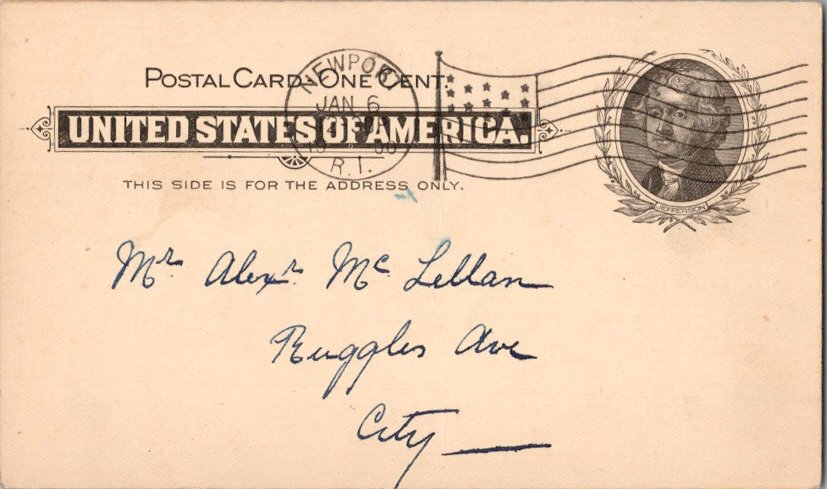 POSTAL CARD. ONE CENT.
UNITED STATES OF AMERICA.
THIS SIDE IS FOR THE ADDRESS ONLY.
NEWPORT
JAN 6
R.I.
JEFFERSON
Mr. Alexr. Mc Lellan
Ruggles Ave
City